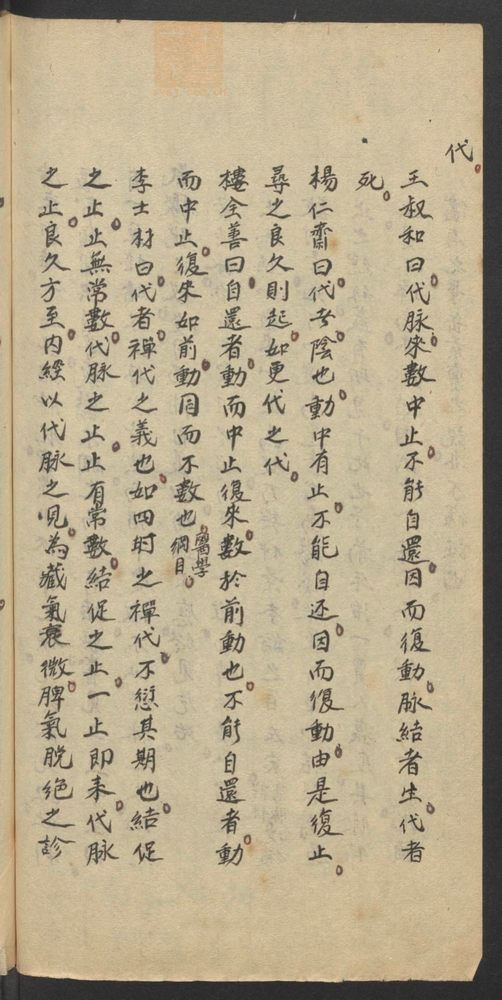 代
王叔和曰代脉來數中止不能自還因而復動脉結者生代者
死
楊仁齋曰代者陰也動中有止不能自还因而復動由是復止
尋之良久則起如更代之代
樓全善曰自還者動而中止復來數於前動也不能自還者動
而中止復來如前動同而不數也醫學綱目
李士材曰代者禪代之義也如四时之禪代不愆其期也結促
之止止無常數代脉之止止有常數結促之止一止即來代脉
之止良久方至内經以代脉之見為藏氣衰微脾氣脱绝之診